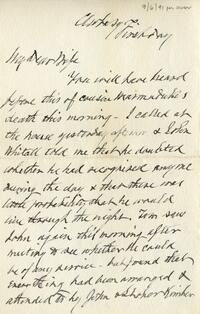 9/6/91
First day
My dear Wife
You will have heard
before this of cousin Marmaduke's
death this morning - I called at
the house yesterday & John
Whitall told me that he doubted
whether he had recognised anyone
during the day & that there was
little probability that he would
live through the night. I saw
John again this morning after
meeting to see whether I could
be of any service - but found that
everything had been arranged &
attended to by John